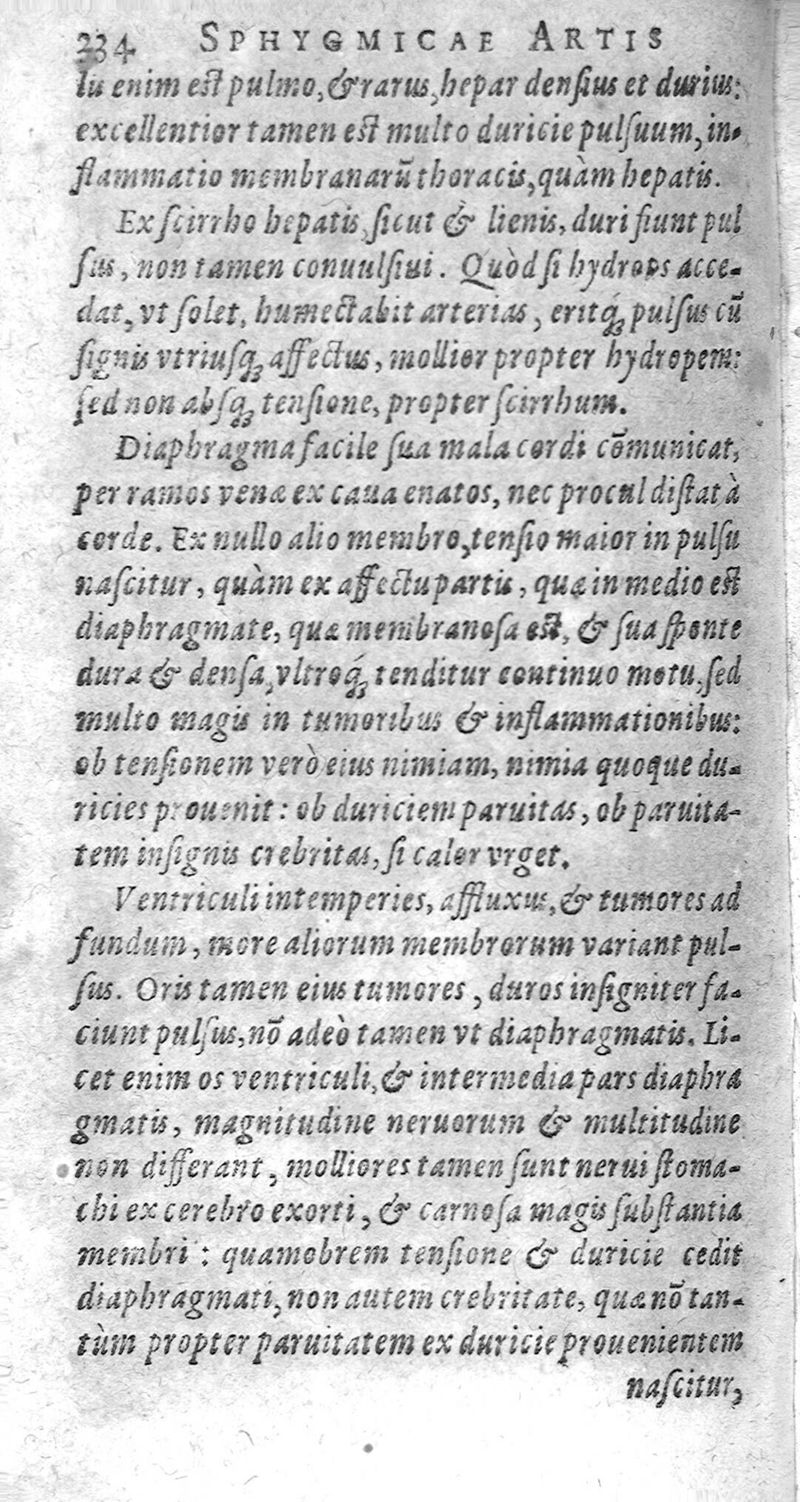 234 SPHYGMICAE ARTIS
lu enim est pulmo, & rarus, hepar densius et durius:
excellentior tamen est multo duricie pulsuum, in-
flammatio membranarū thoracis, quàm hepatis.
Ex scirrho hepatis, sicut & lienis, duri fiunt pul
sus, non tamen conuulsiui. Quòd si hydrops acce-
dat, vt solet, humectabit arterias, eritq́; pulsus cū
signis vtriusq; affectus, mollior propter hydropem:
sed non absq; tensione, propter scirrhum.
Diaphragma facile sua mala cordi cōmunicat,
per ramos venæ ex caua enatos, nec procul distat à
corde. Ex nullo alio membro, tensio maior in pulsu
nascitur, quàm ex affectu partis, quæ in medio est
diaphragmate, quæ membranosa est, & sua sponte
dura & densa, vltroq́; tenditur continuo motu, sed
multo magis in tumoribus & inflammationibus:
ob tensionem verò eius nimiam, nimia quoque du-
ricies prouenit: ob duriciem paruitas, ob paruita-
tem insignis crebritas, si calor vrget.
Ventriculi intemperies, affluxus, & tumores ad
fundum, more aliorum membrorum variant pul-
sus. Oris tamen eius tumores, duros insigniter fa-
ciunt pulsus, nō adeò tamen vt diaphragmatis. Li-
cet enim os ventriculi, & intermedia pars diaphra
gmatis, magnitudine neruorum & multitudine
non differant, molliores tamen sunt nerui stoma-
chi ex cerebro exorti, & carnosa magis substantia
membri: quamobrem tensione & duricie cedit
diaphragmati, non autem crebritate, quæ nō tan-
tùm propter paruitatem ex duricie prouenientem
nascitur,